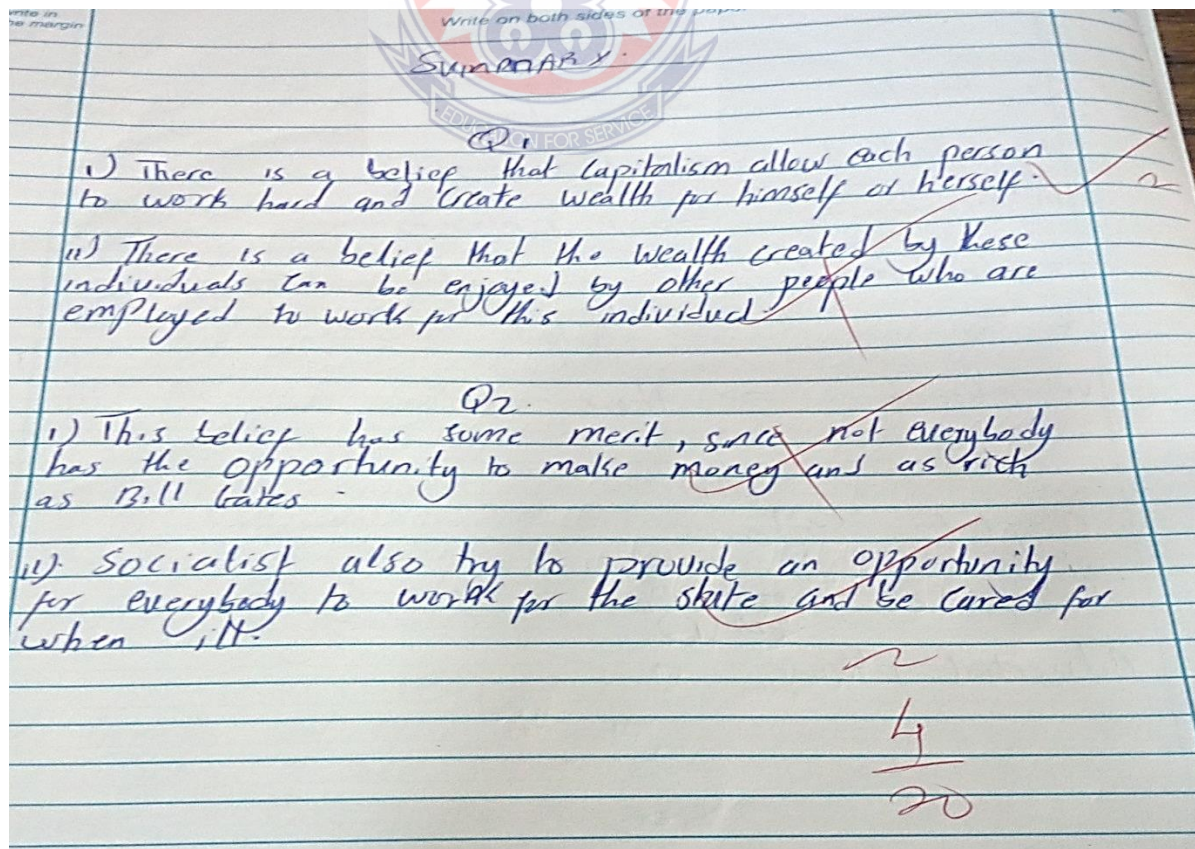 nto in
e margin
Write on both sides of the
SUMMARY.
EDUCATION FOR SERVICE
Q1
i) There is a belief that Capitalism allow each person
to work hard and create wealth for himself or herself.
2
ii) There is a belief that the wealth created by these
individuals can be enjoyed by other people who are
employed to work for this individual.
Q2.
i) This belief has some merit, since not everybody
has the opportunity to make money and as rich
as Bill Gates.
ii). Socialist also try to provide an opportunity
for everybody to work for the state and be cared for
when ill.
2
4
20